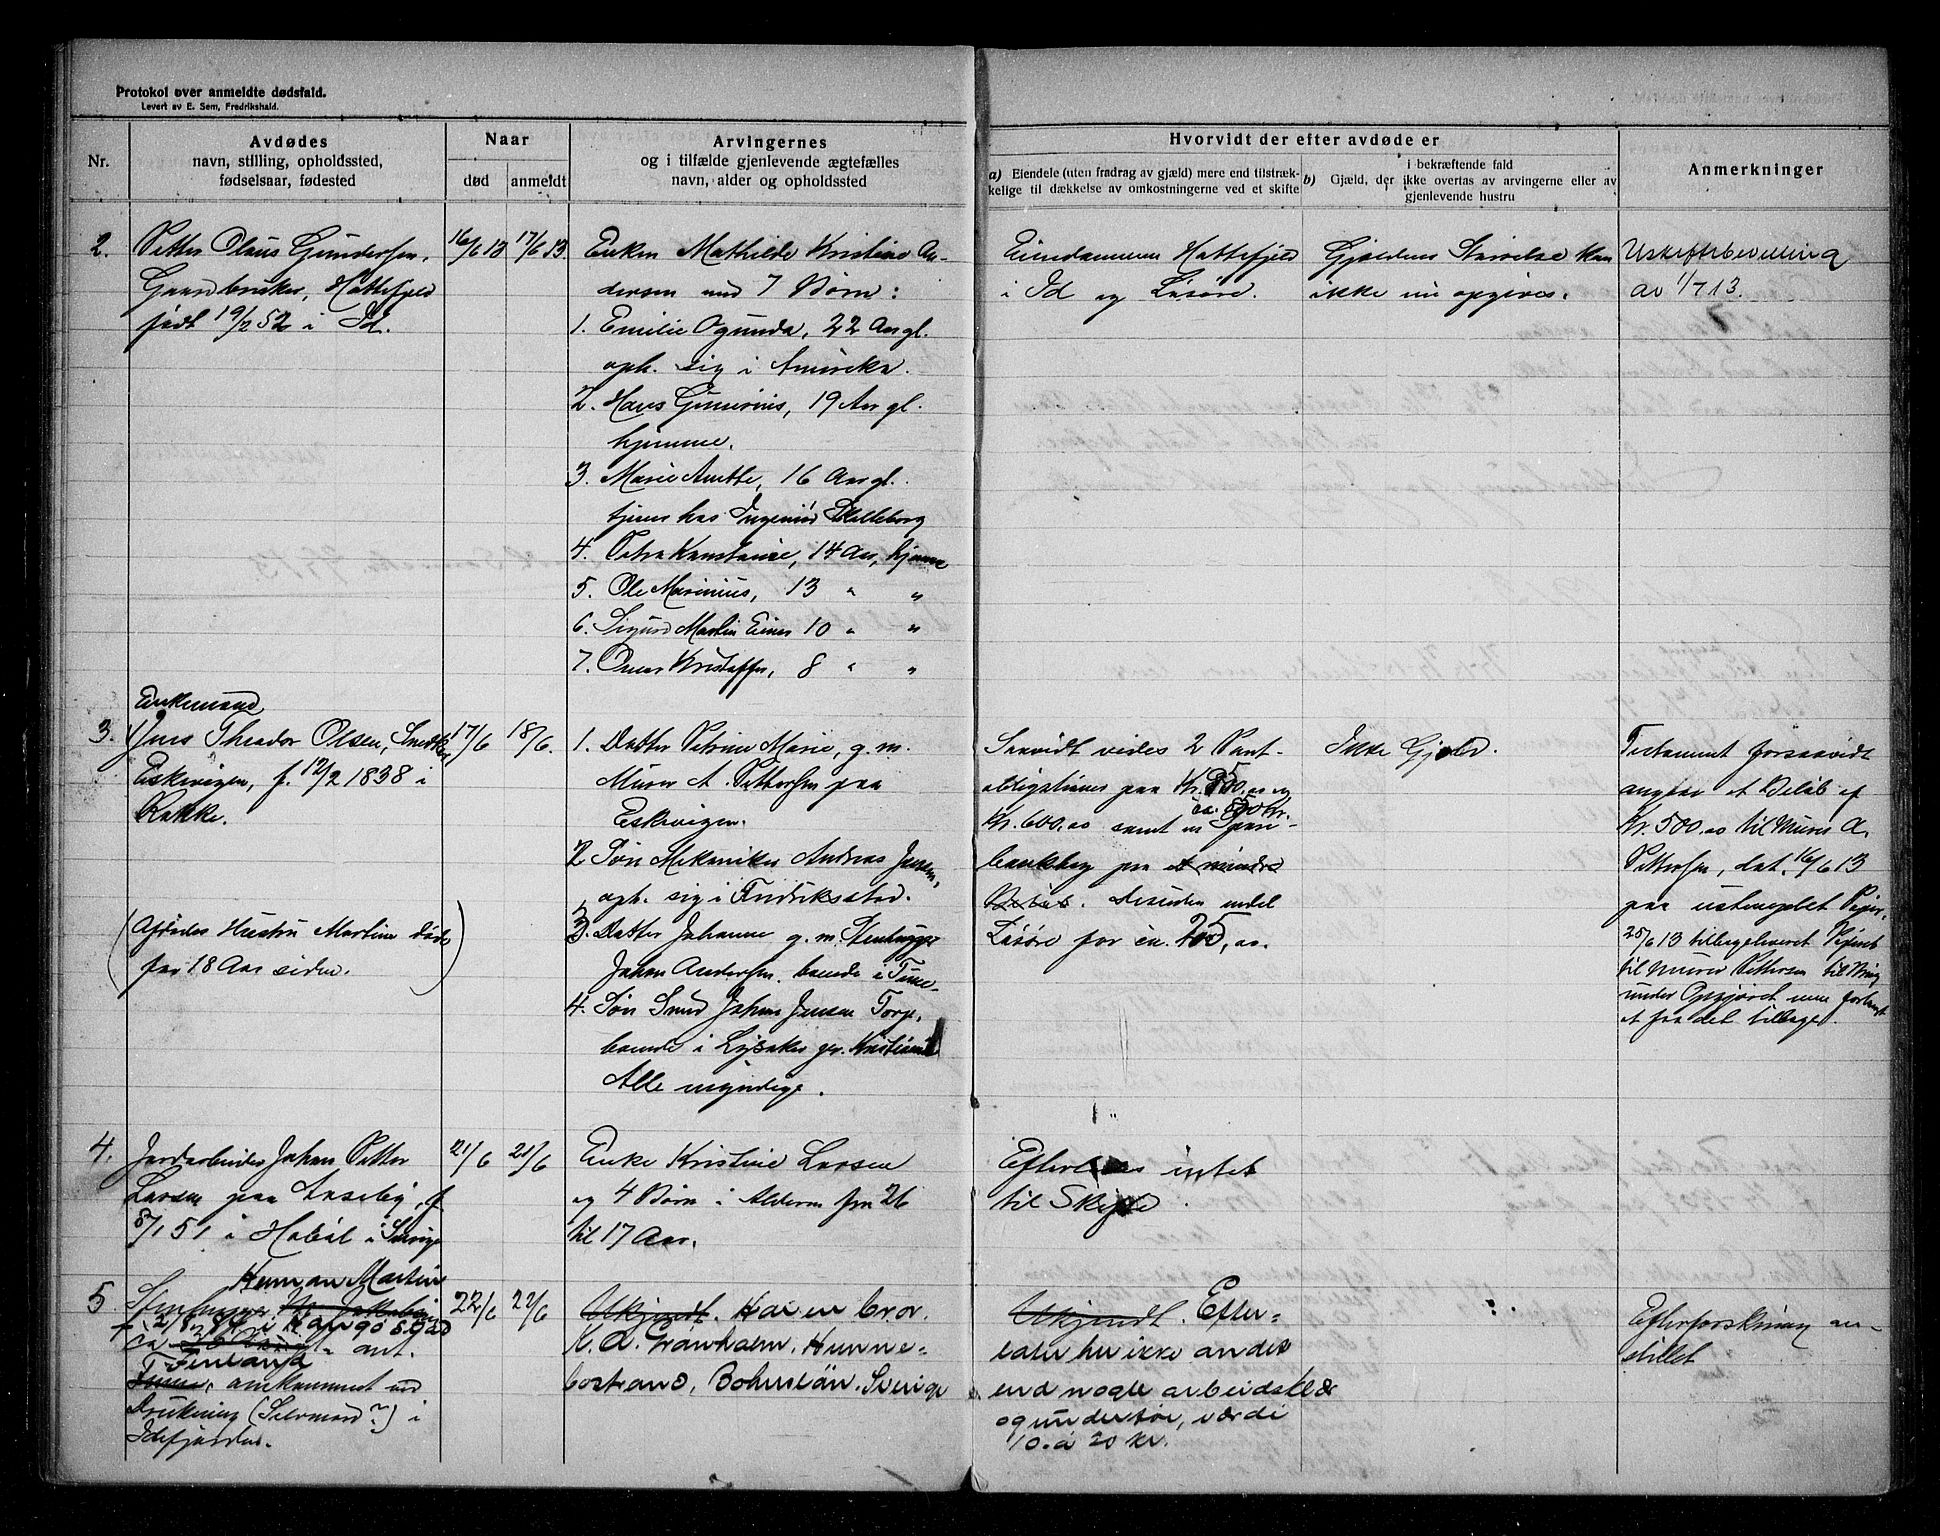 Protokol over anmeldte dødsfald.
Levert av E. Sem, Fredrikshald.
Nr.
Avdødes
navn, stilling, opholdssted,
fødselsaar, fødested
Naar
død
anmeldt
Arvingernes
og i tilfælde gjenlevende ægtefælles
navn, alder og opholdssted
Hvorvidt der efter avdøde er
a) Eiendele (uten fradrag av gjæld) mere end tilstræk-
kelige til dækkelse av omkostningerne ved et skifte
b) Gjæld, der i bekræftende fald
ikke overtas av arvingerne eller av
gjenlevende hustru
Anmerkninger
2.
Petter Olaus Gundersen,
Gaardbruker, Hattefjeld
født 19/2 52 i Id.
16/6 13
17/6 13.
Enken Mathilde Kristine An-
dersen med 7 Børn:
1. Emilie Ogunda, 22 Aar gl.
oph. sig i Amerika.
2. Hans Gunerius, 19 Aar gl.
hjemme.
3. Marie Anette, 16 Aar gl.
tjener hos Ingeniør
4. Petra Konstanse, 14 Aar, hjemme
5. Ole Marinius, 13 " "
6. Sigurd Martin Einar 10 " "
7. Kristoffer, 8 " "
Eiendommen Hattefjeld
i Id og Løsøre.
Gjældens Størrelse kan
ikke nu opgives.
Uskiftebevilling
av 1/7 13.
Enkemand
3.
Jens Theodor Olsen,
Eskevigen, f. 12/2 1838 i
Rakke.
(Afdødes Hustru Martine døde
for 18 Aar siden.)
17/6
18/6.
1. Datter Petrine Marie, g. m.
Murer A. Pettersen paa
Eskevigen.
2 Søn Mekaniker Andreas Jensen,
oph. sig i Fredriksstad.
3. Datter Johanne g. m. Stenhugger
Johan Andersen, boende i Tune.
4. Søn Smed Johan Jensen Torp,
boende i Lysaker pr. Kristiania
Alle myndige.
Saavidt vides 2 Pant-
obligationer paa Kr.
Kr. 600,00 samt en Spare-
ca. 500 kr.
bankbog paa et mindre
Beløb. Desuden endel
Løsøre for ca. 25,00.
Ikke Gjæld.
Testament forsaavidt
angaar et Beløb af
Kr. 500,00 til Murer A.
Pettersen, dat. 16/6 13
paa ustemplet Papir.
25/6 13 tilbageleveret
til Murer Pettersen
under
at faa det tilbage.
4.
Jordarbeider Johan Petter
Larsen paa
5/1 51 i Håbøl i Sverige
21/6
21/6
Enke Kristine Larsen
og 4 Børn i Alderen fra 26
til 17 Aar.
Efterlates intet
til Skifte.
5.
Herman Martin
Stenhugger
f. 2/8 84 i Hangø
ca
Finland
Tune, omkommet ved
Drukning (Selvmord?) i
Idefjorden.
22/6
22/6
Ukjendt. Har en bror.
K. A. Grønholm, Hunne-
bostrand, Bohuslän, Sverige
Ukjendt. Efter-
later sig ikke andet
end nogle arbeidsklær
og undertøi, værdi
10 à 20 kr.
Efterforskning an-
stillet